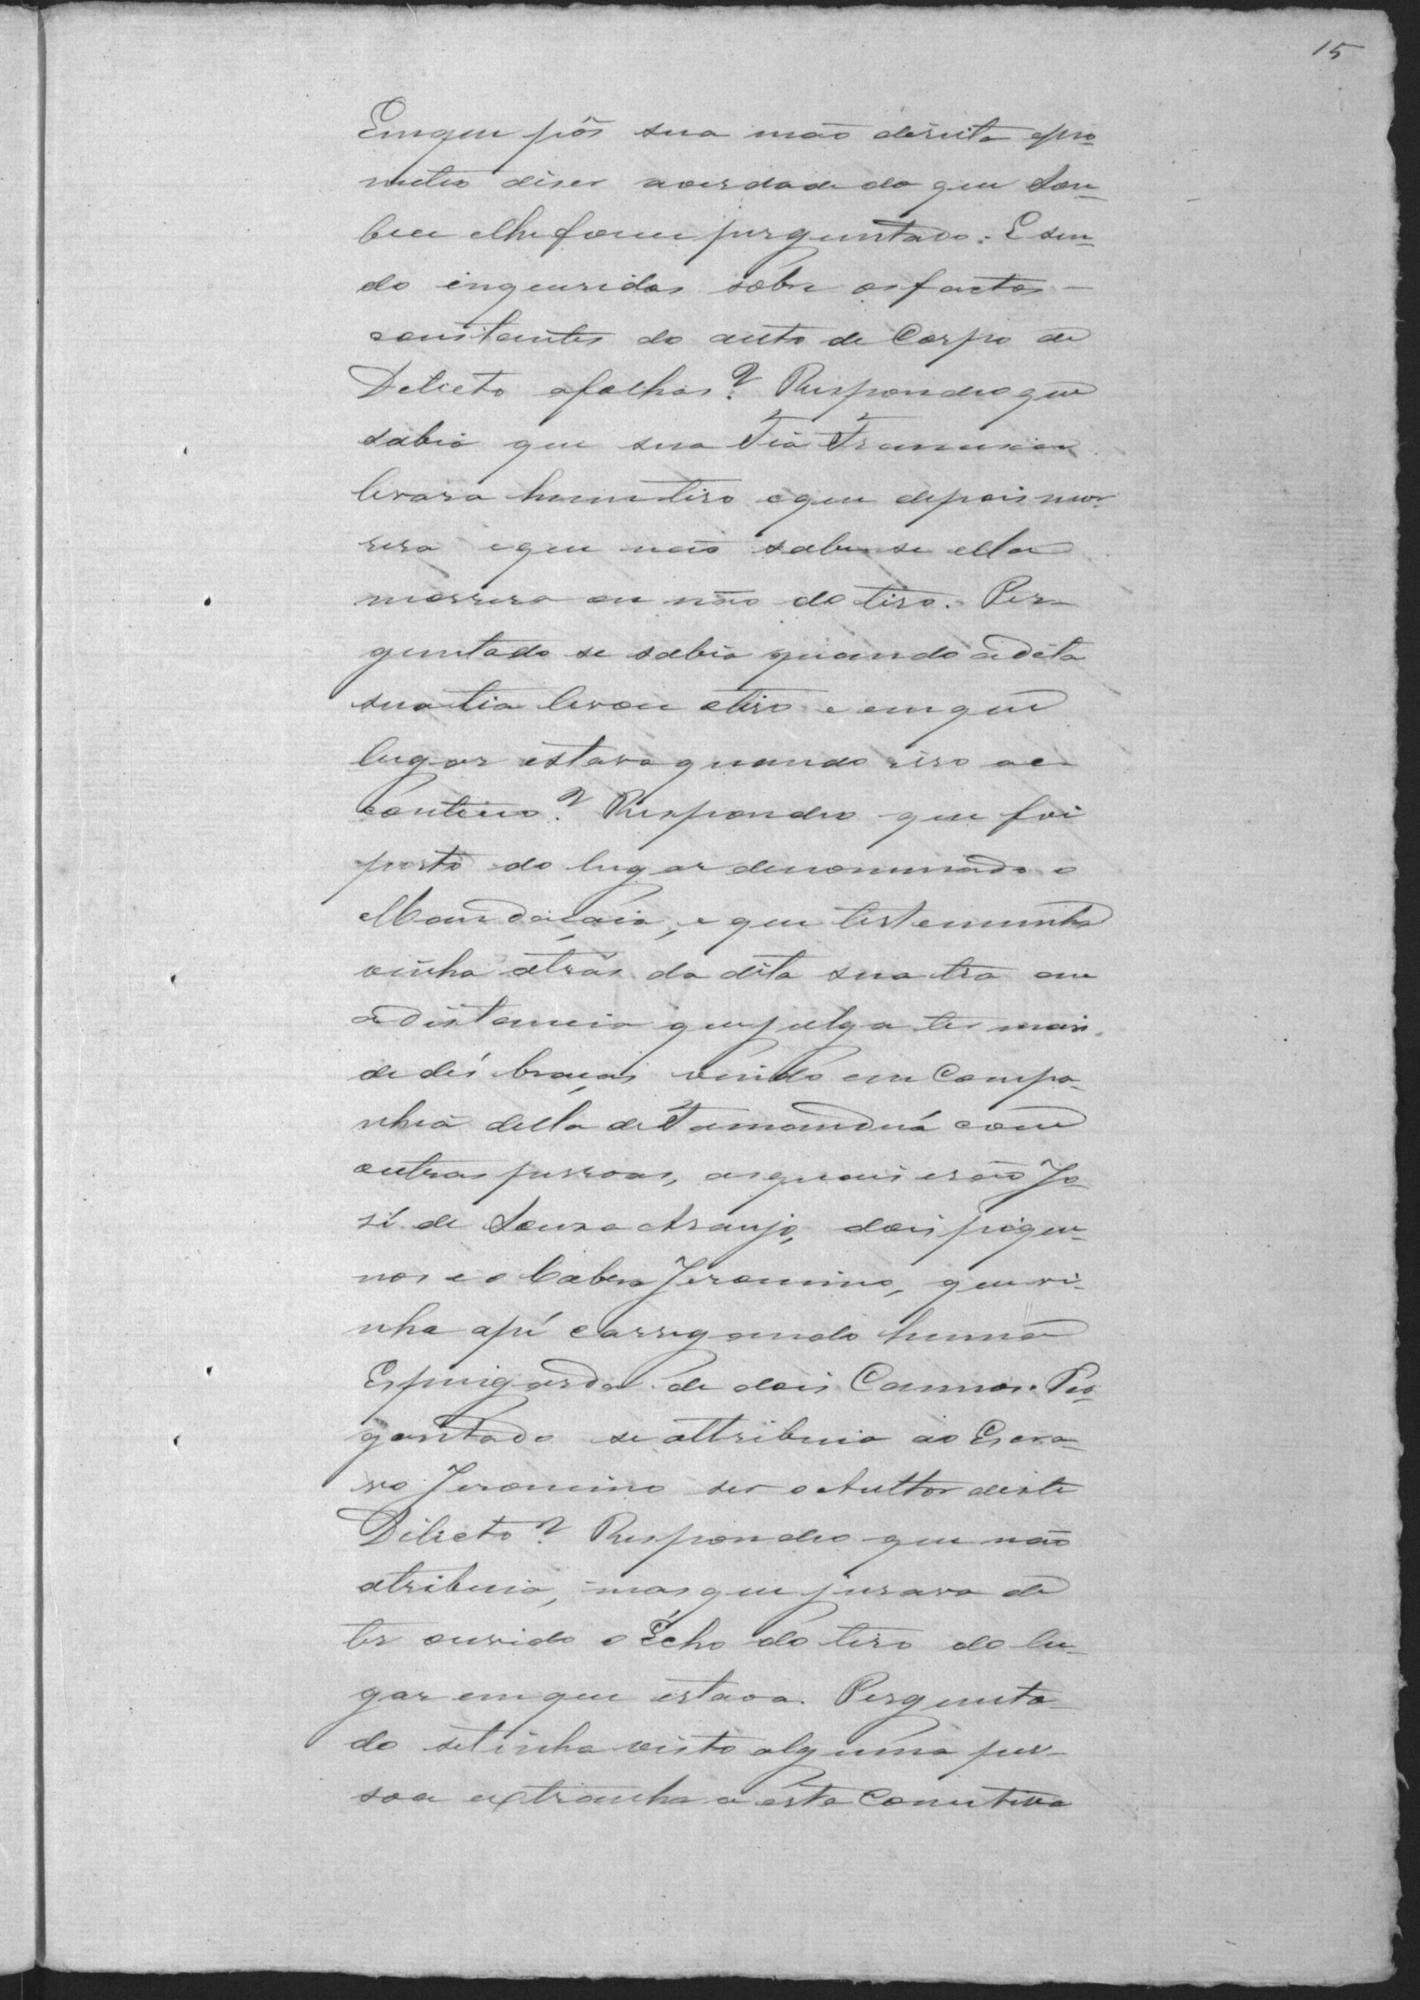 15
Emque pôs sua mão direita epro-
meteo diser averdade do que sou-
besse elhe fosse perguntado. E sen-
do inqueridos sobre os factos -
constantes do auto de Corpo de
Delicto afolhas? Respondeo que
sabia que sua Tia Francisca
levara hum tiro eque depois mor-
rera eque não sabe se ella
morrera ou não do tiro. Per-
guntado se sabia quando adita
sua tia levou otiro e emque
lugar estava quando isso a-
conteceo? Respondeo que foi
perto do lugar denominado o
Mandaçaia, e que testemunha
vinha atrás da dita sua tia em
a distancia que julga ter mais
de dés braças vindo em Compa-
nhia della de Tamanduá com
outras pessoas, as quais erão Jo-
sé de Souza Araujo, dois peque-
nos e o Cabra Jeronimo, que vi-
nha apé carregando huma
Espingarda de dois Cannos. Per-
guntado se attribuia ao Escra-
vo Jeronimo ser o Author deste
Dilicto? Respondeo que não
atribuia, mas que jurava de
ter ouvido o Écho do tiro do lu-
gar emque estava. Pergunta-
do setinha visto alguma pes-
soa extranha a esta Comitiva